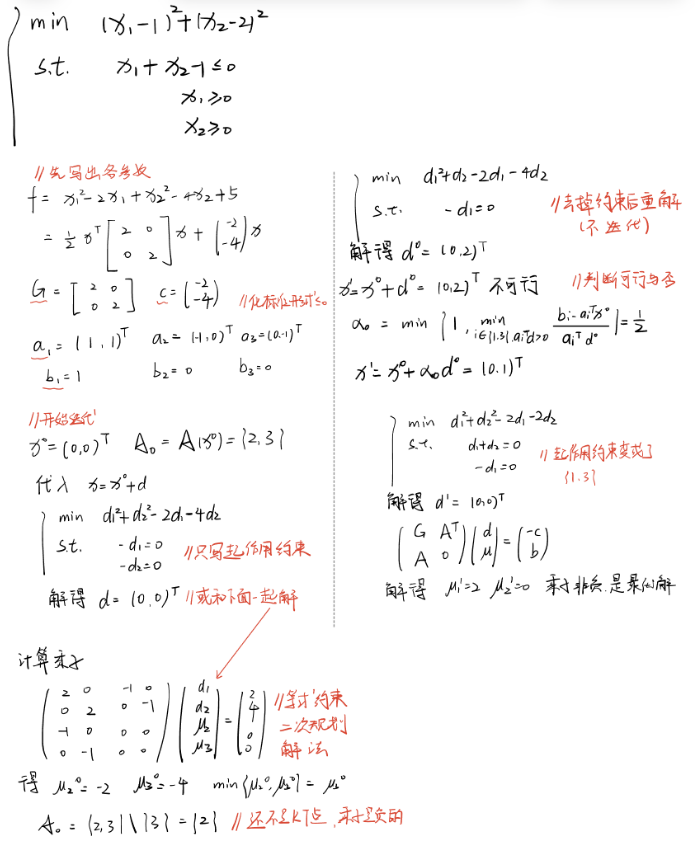 min (x₁-1)²+(x₂-2)²
s.t. x₁+x₂-1≤0
x₁≥0
x₂≥0
//先写出各参数
f= x₁²-2x₁+x₂²-4x₂+5
= ½xᵀ[2 0; 0 2]x+(-2; -4)x
G=[2 0; 0 2] c=(-2; -4) //化标准形式≤0
a₁=(1,1)ᵀ a₂=(-1,0)ᵀ a₃=(0,-1)ᵀ
b₁=1 b₂=0 b₃=0
//开始迭代
x⁰=(0,0)ᵀ A₀=A(x⁰)={2,3}
代入 x=x⁰+d
min d₁²+d₂²-2d₁-4d₂
s.t. -d₁=0
-d₂=0 //只写起作用约束
解得 d=(0,0)ᵀ //或和下面一起解
计算乘子
(2 0 -1 0; 0 2 0 -1; -1 0 0 0; 0 -1 0 0)(d₁; d₂; μ₂; μ₃)=(2; 4; 0; 0) //等式约束
二次规划
解法
得 μ₂⁰=-2 μ₃⁰=-4 min{μ₂⁰,μ₃⁰}=μ₃⁰
A₀={2,3}\{3}={2} //还不是KT点,乘子是负的
min d₁²+d₂-2d₁-4d₂
s.t. -d₁=0 //去掉约束后重解
(不迭代)
解得 d⁰=(0,2)ᵀ
x¹=x⁰+d⁰=(0,2)ᵀ 不可行 //判断可行与否
α₀=min{1, min i∈{1,3},aᵢᵀd>0 (bᵢ-aᵢᵀx⁰)/(aᵢᵀd⁰)}=½
x¹=x⁰+α₀d⁰=(0,1)ᵀ
min d₁²+d₂²-2d₁-2d₂
s.t. d₁+d₂=0
-d₁=0 //起作用约束变成了
{1,3}
解得 d¹=(0,0)ᵀ
(G Aᵀ; A 0)(d; μ)=(-c; b)
解得 μ₁¹=2 μ₂¹=0 乘子非负,是最优解